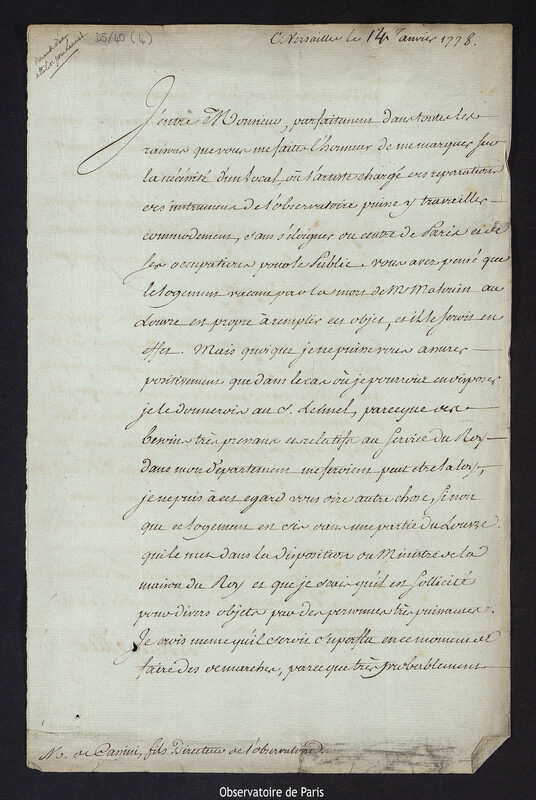 D5/40 (4)
A Versailles le 14 Janvier 1778.
J'entre Monsieur, parfaitement dans toutes les
raisons que vous me faites l'honneur de me marquer sur
la nécessité d'un local, où l'artiste chargé des reparations
des instrumens de l'observatoire puisse y travailler
commodement, sans s'éloigner du centre de Paris et de
ses occupations pour le Public. vous avez pensé que
le logement vacant par la mort de M. Malouin au
Louvre est propre à remplir cet objet, et il le seroit en
effet. Mais quoique je ne puisse vous assurer
positivement que dans le cas où je pourrois en disposer
je le donnerois au S. Lennel, parceque des
besoins très pressans et relatifs au Service du Roy
dans mon département me feroient peut etre la loy,
je ne puis à cet egard vous dire autre chose, sinon
que ce logement est sis dans une partie du Louvre
qui le met dans la disposition du Ministre de la
maison du Roy et que je sais qu'il est sollicité
pour divers objets par des personnes très puissantes.
Je crois meme qu'il seroit superflu en ce moment de
faire des demarches, parce que très probablement
M. de Cassini, fils Directeur de l'observatoire
Observatoire de Paris